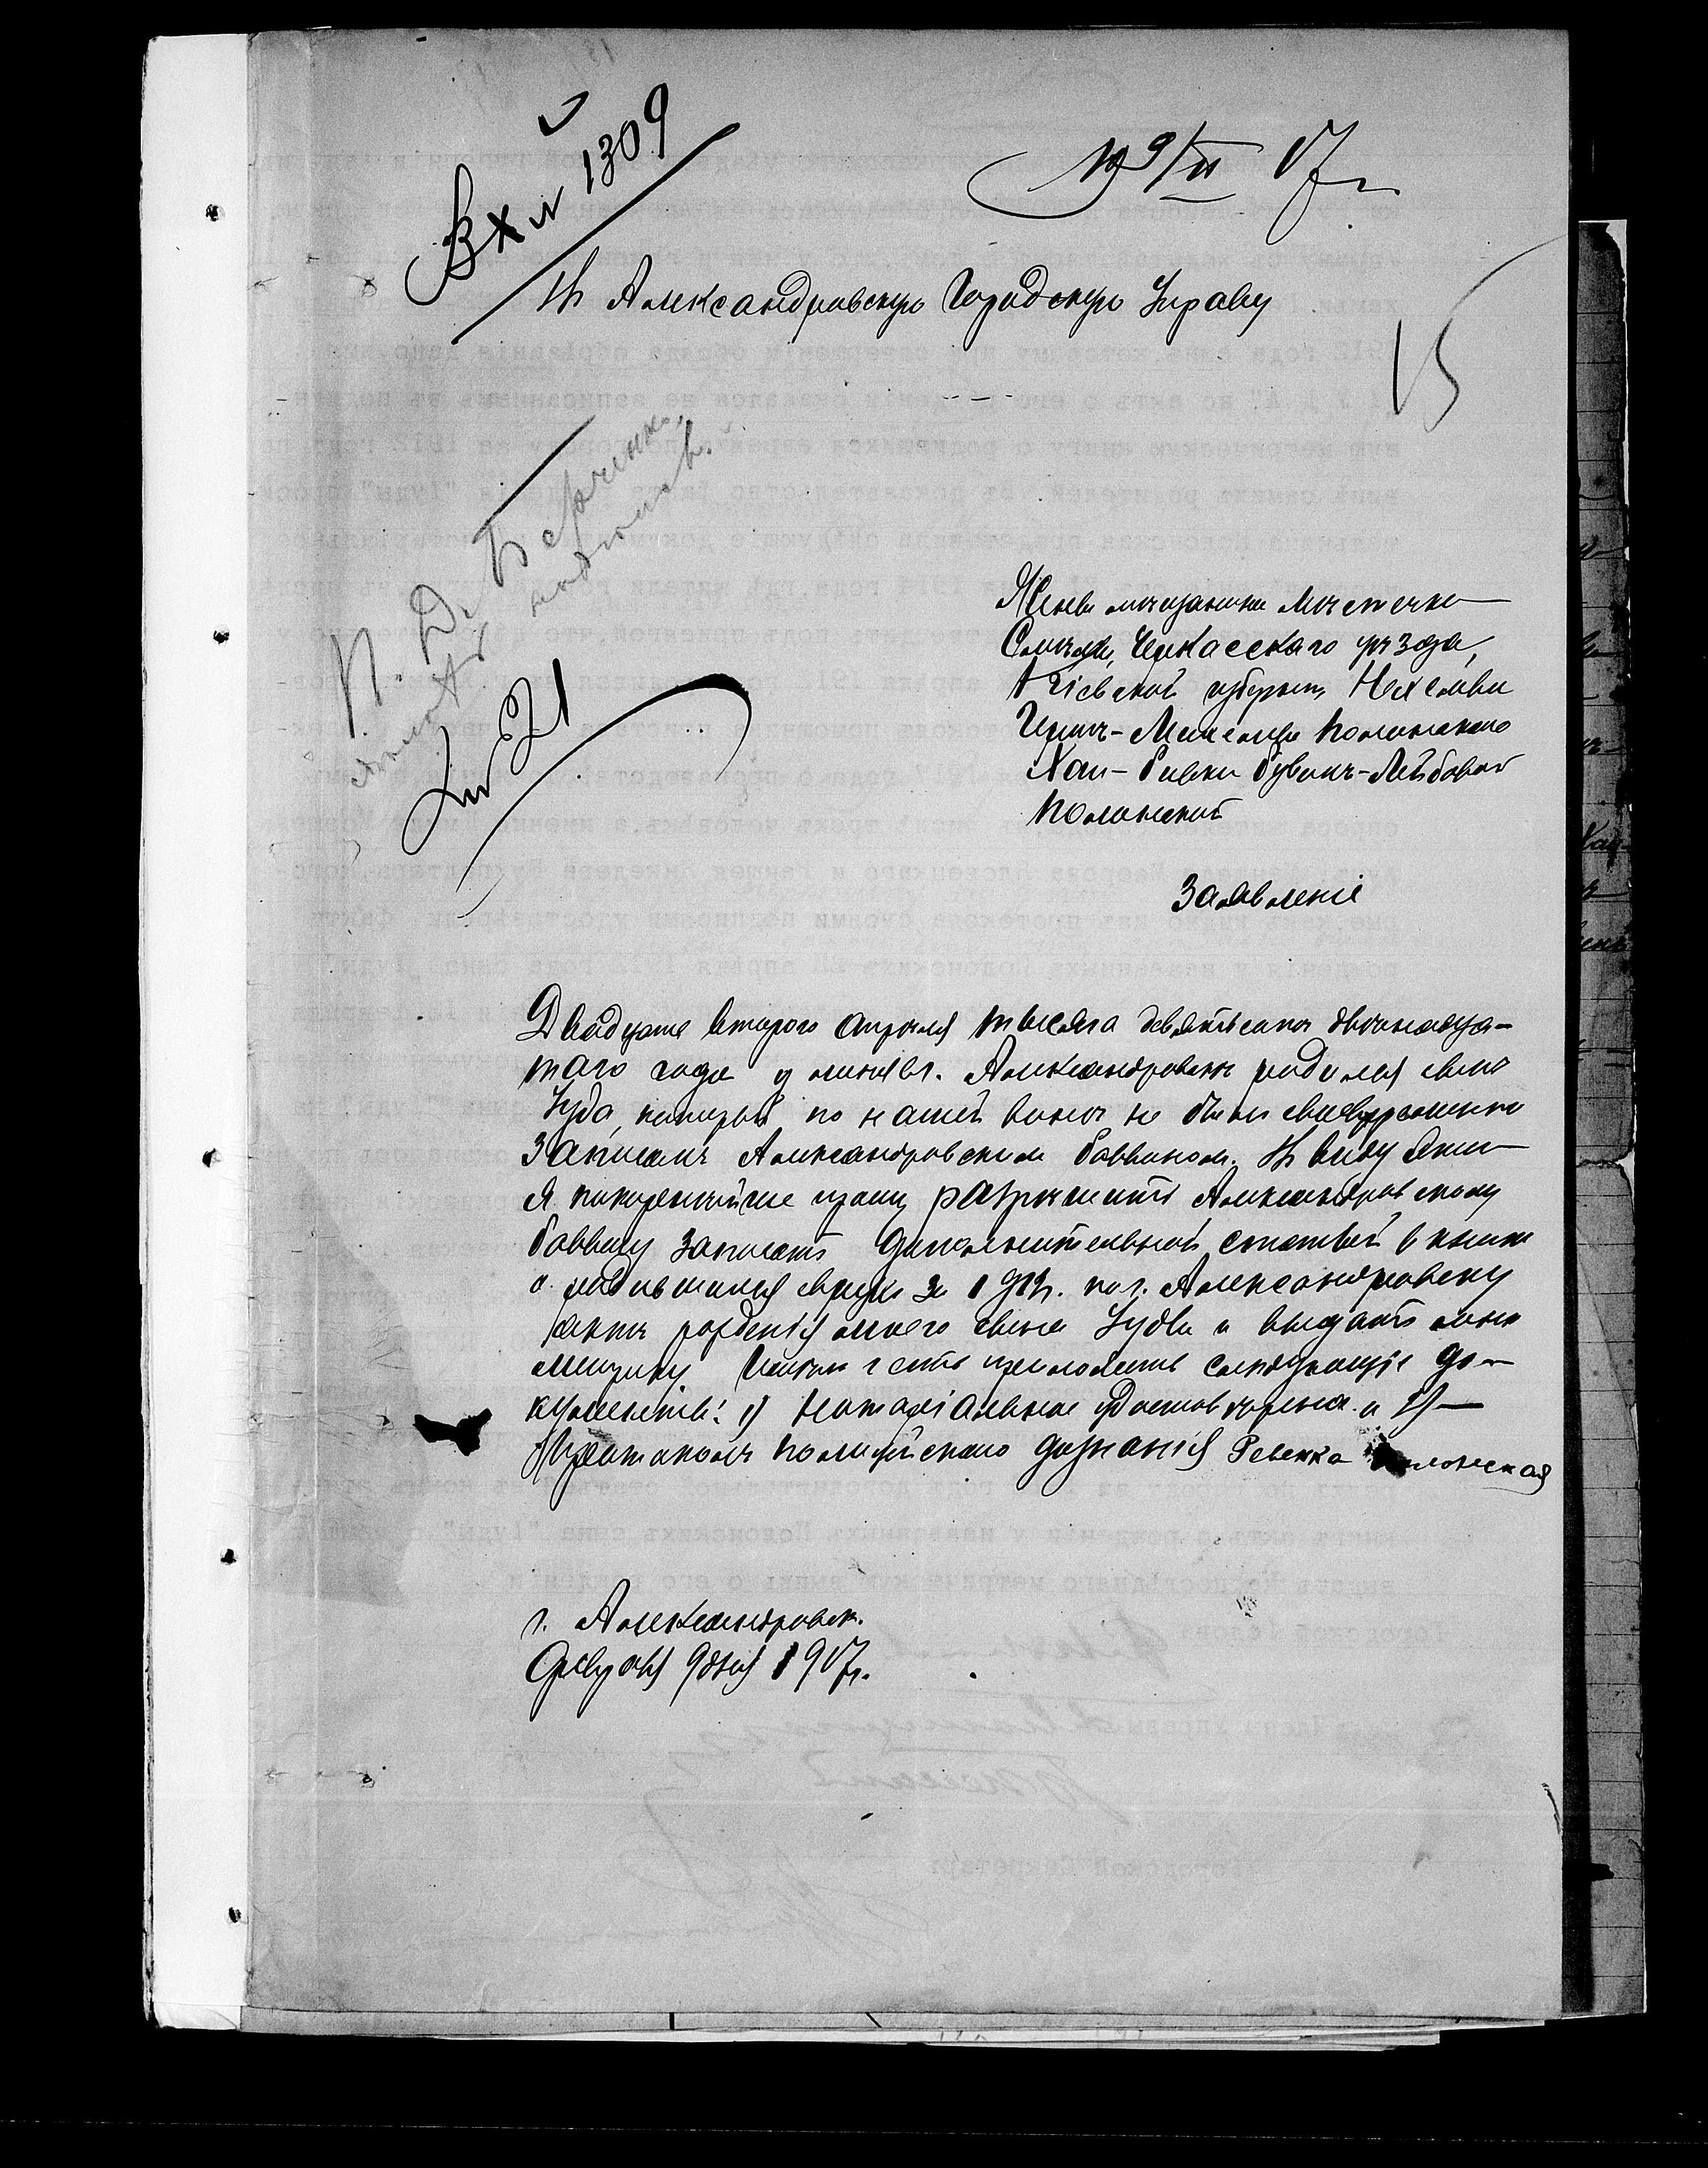 Вх № 1309
9/II 17 г.
Въ Александровскую Городскую Управу
15
П. Д.
№ 21
Жены мещанина местечка
Смелы, Черкасского уѣзда,
Кіевской губерніи,
Полонского
Хаи-Ривки Рувинъ-Лейбовой
Полонской
Заявленіе
Двадцать второго апрѣля тысяча девятьсотъ двѣнадца-
таго года у меня въ г. Александровскѣ родился сынъ
Іуда, который по нашей винѣ не былъ своевременно
записанъ Александровскимъ Раввиномъ. Въ виду
я покорнѣйше прошу разрѣшить Александровскому
Раввину записать дополнительной статьей въ книгѣ
о родившихся евреяхъ за 1912 г. по г. Александровску
актъ рожденія моего сына Іуды и выдать мнѣ
метрику Имѣю честь приложить слѣдующіе до-
кументы: 1) нотаріальное и 2)
Протоколъ полицейскаго дознанія Ревекка Полонская
г. Александровск.
Февраля 9 дня 1917 г.